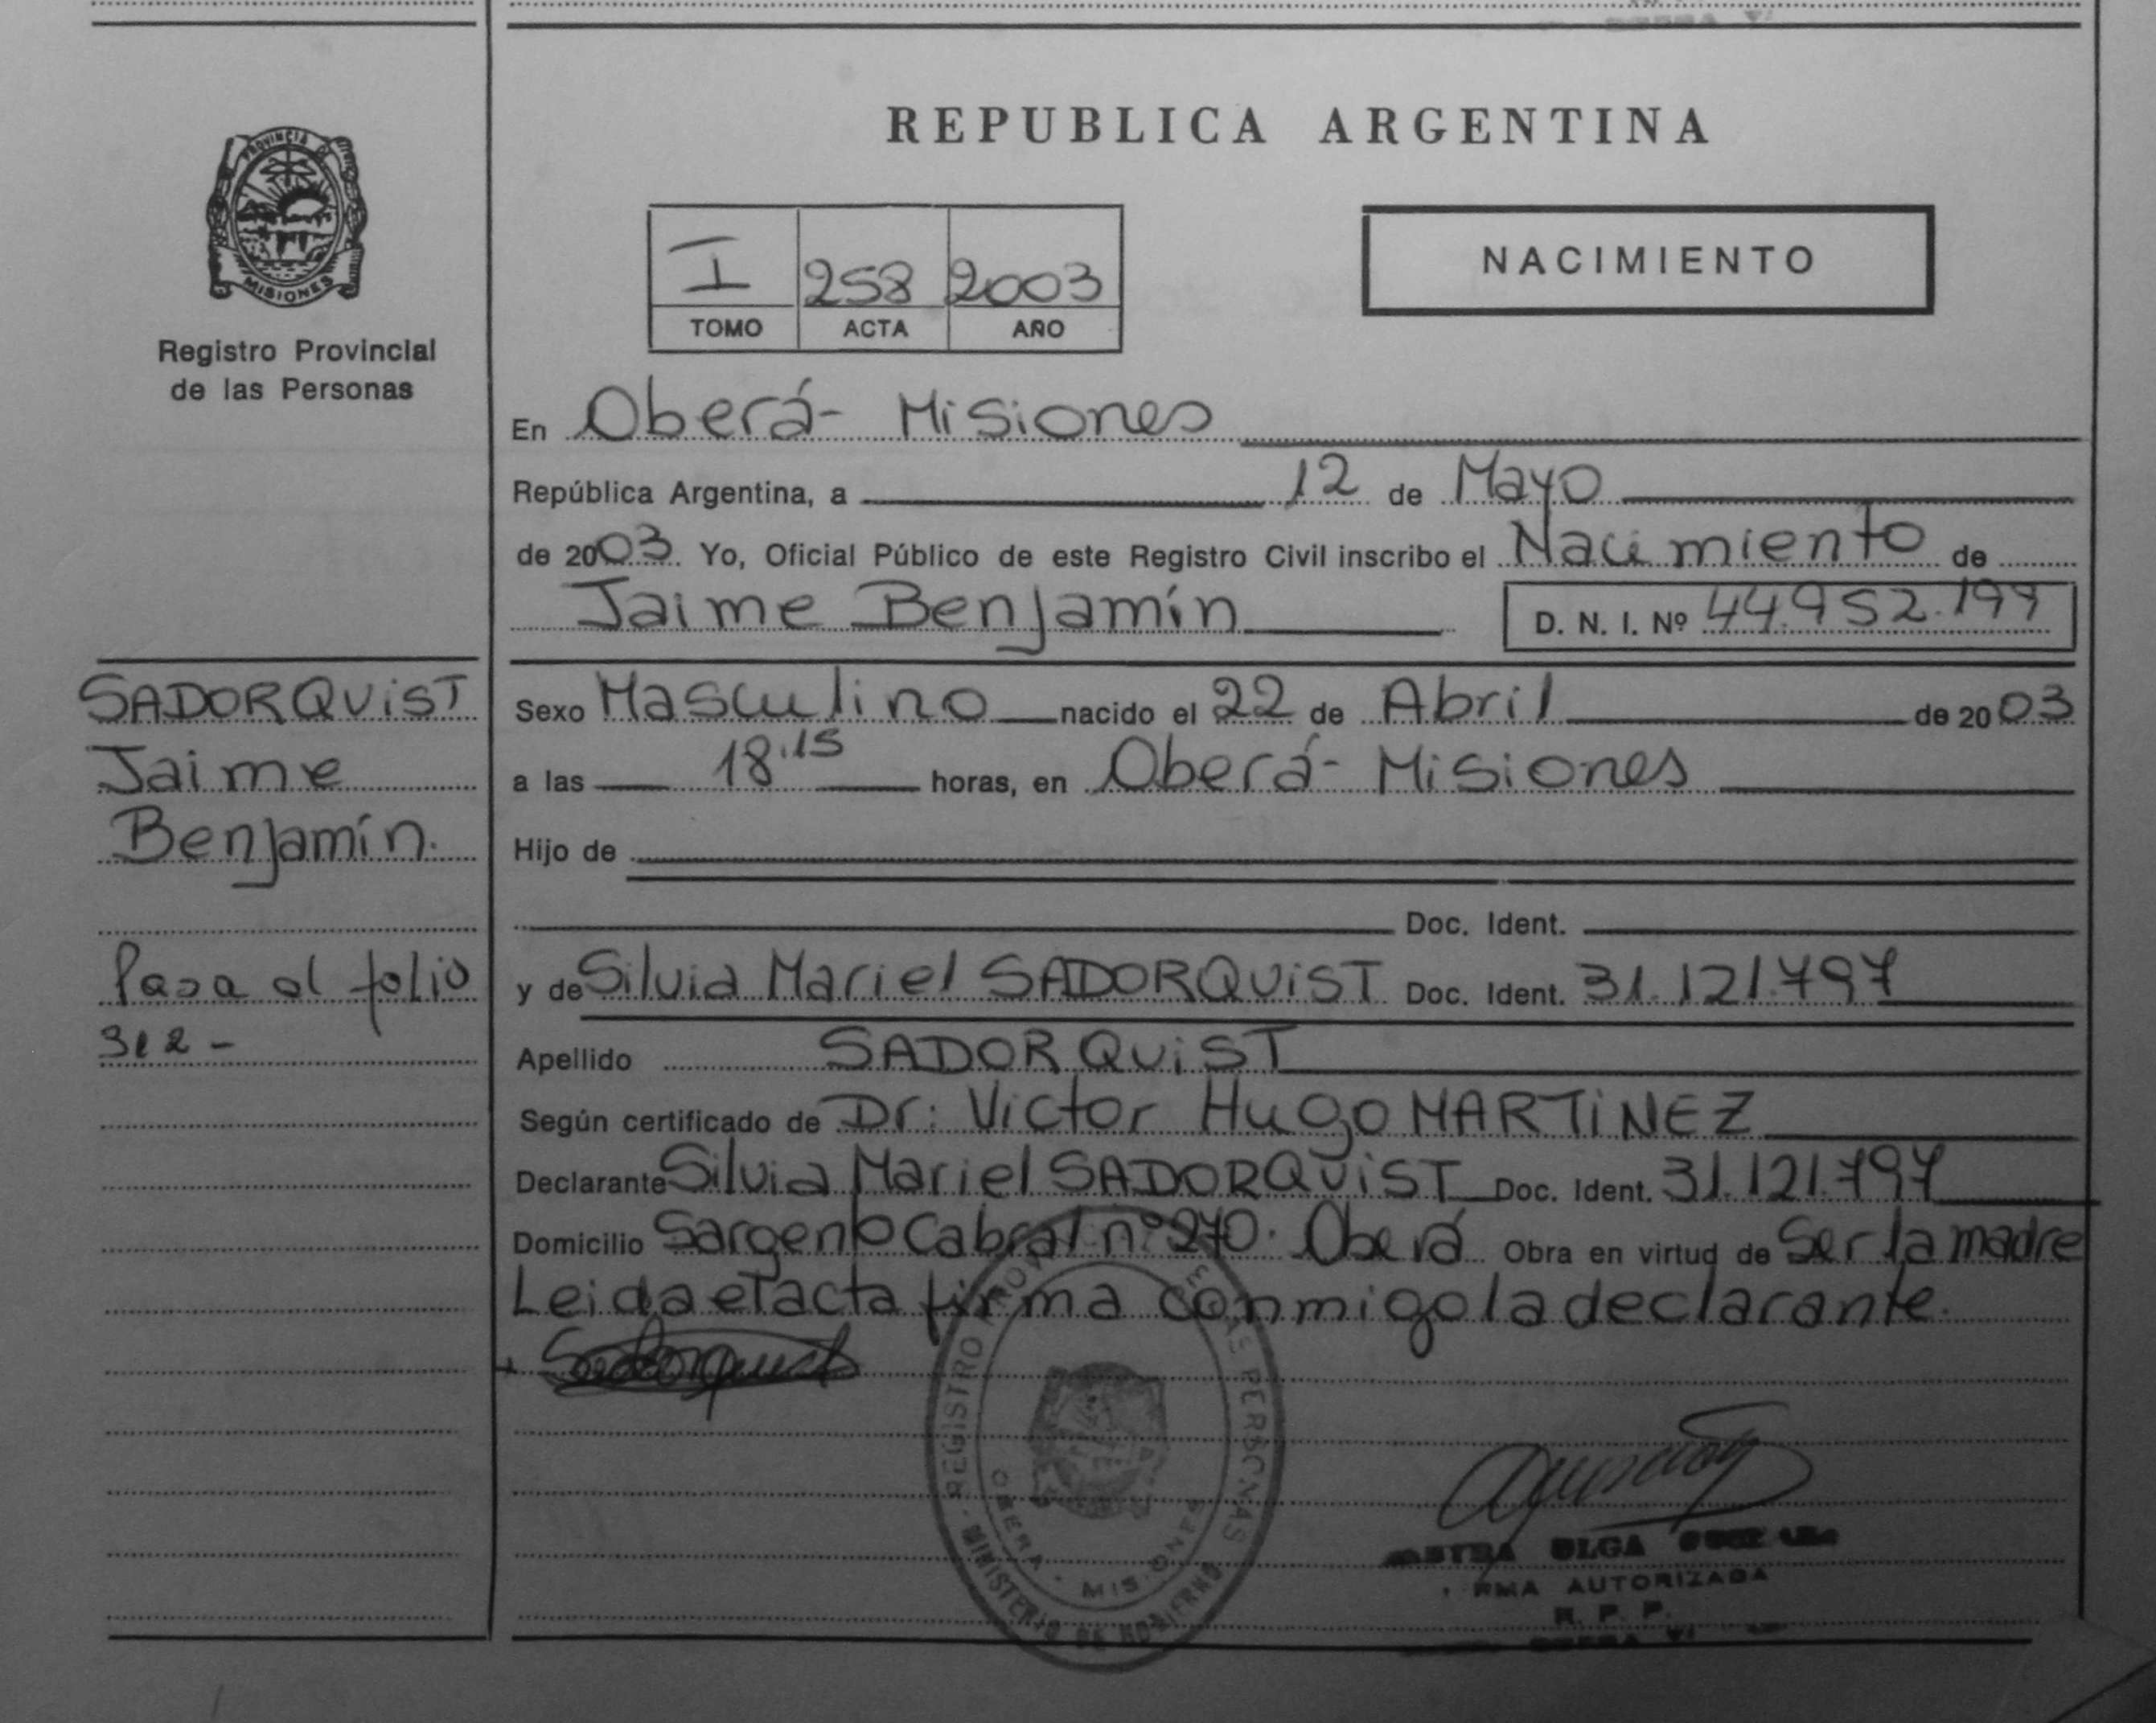 REPUBLICA ARGENTINA
PROVINCIA DE
MISIONES
Registro Provincial
de las Personas
I 258 2003
TOMO ACTA AÑO
NACIMIENTO
En Oberá- Misiones
República Argentina, a 12 de Mayo
de 2003. Yo, Oficial Público de este Registro Civil inscribo el Nacimiento de
Jaime Benjamín D. N. I. Nº 44.952.199
SADORQUiST
Jaime
Benjamín.
Pasa al folio
312 -
Sexo Masculino nacido el 22 de Abril de 2003
a las 18.15 horas, en Oberá- Misiones
Hijo de
Doc. Ident.
y de Silvia Mariel SADORQUiST Doc. Ident. 31.121.797
Apellido SADORQUiST
Según certificado de Dr: Victor Hugo MARTiNEZ
Declarante Silvia Mariel SADORQUiST Doc. Ident. 31.121.797
Domicilio Sargento Cabral nº 270. Oberá Obra en virtud de Ser la madre
Leida el acta firma conmigo la declarante.
Sadorquist
REGISTRO PERSONAS
MINISTERIO DE GOBIERNO
OBERA - MISIONES
OLGA
AUTORIZADA
R. P. P.